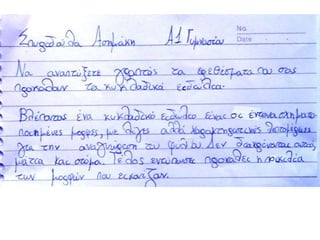 Σπυριδούλα Ασημάκη Α1 Γυμνασίου
No.
Date
Να αναπτύξετε γραπτώς τα συναισθήματα που σας
προκαλούν τα κυκλαδικά ειδώλια.
Βλέποντας ένα κυκλαδικό ειδώλιο είναι σε έντονα σχηματο
ποιημένες μορφές, με λίγες αλλά χαρακτηριστικές λεπτομέρειες
για την αναγνώριση του φύλου. Δεν διακρίνονται αυτιά,
μάτια και στόμα. Τέλος εντύπωση προκαλεί η ποικιλία
των μορφών που εικονίζαν.